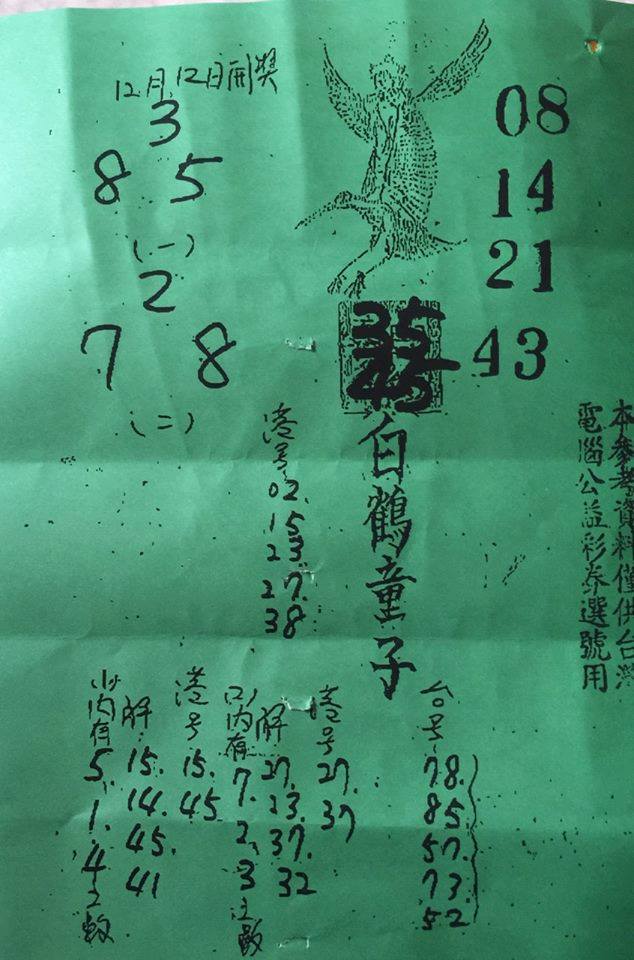 12月12日開獎
3
8 5
(一)
2
7 8
(二)
08
14
21
43
35
45
白鶴童子
本參考資料僅供台灣
電腦公益彩券選號用
港号
02.
15
23.
27.
38
台号
78.
85
57.
73.
52
港号
27.
37
解
27.
23.
37.
32
内存
7.
2.
3
主數
港号
15.
45
解
15.
14.
45.
41
内存
5.
1.
4
主數